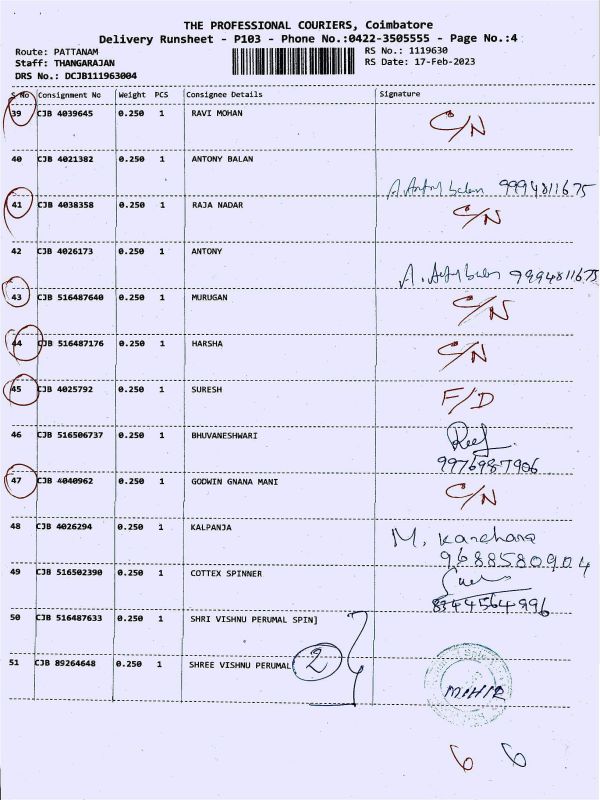 THE PROFESSIONAL COURIERS, Coimbatore
Delivery Runsheet - P103 - Phone No.:0422-3505555 - Page No.:4
Route: PATTANAM RS No.: 1119630
Staff: THANGARAJAN RS Date: 17-Feb-2023
DRS No.: DCJB111963004
S No Consignment No Weight PCS Consignee Details Signature
39 CJB 4039645 0.250 1 RAVI MOHAN C/N
40 CJB 4021382 0.250 1 ANTONY BALAN
A. Antony balan 9994811675
41 CJB 4038358 0.250 1 RAJA NADAR C/N
42 CJB 4026173 0.250 1 ANTONY
A. balan 9994811675
43 CJB 516487640 0.250 1 MURUGAN C/N
44 CJB 516487176 0.250 1 HARSHA C/N
45 CJB 4025792 0.250 1 SURESH F/D
46 CJB 516506737 0.250 1 BHUVANESHWARI
9976987906
47 CJB 4040962 0.250 1 GODWIN GNANA MANI C/N
48 CJB 4026294 0.250 1 KALPANJA M. Kanchana
9688580904
49 CJB 516502390 0.250 1 COTTEX SPINNER
8344564996
50 CJB 516487633 0.250 1 SHRI VISHNU PERUMAL SPIN]
51 CJB 89264648 0.250 1 SHREE VISHNU PERUMAL 2 MIHIR
6 6